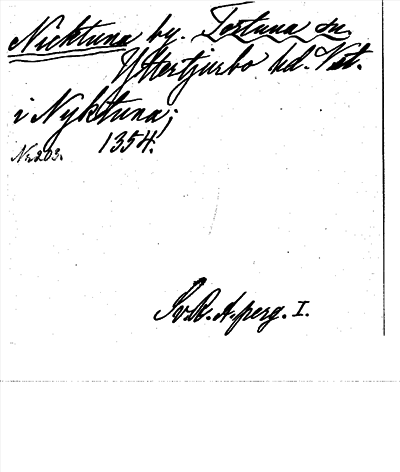 Nicktuna by. Tortuna sn
Yttertjurbo hd. Vstm.
i Nyktuna;
Nr. 203. 1354.
Sv. R. A. perg. I.